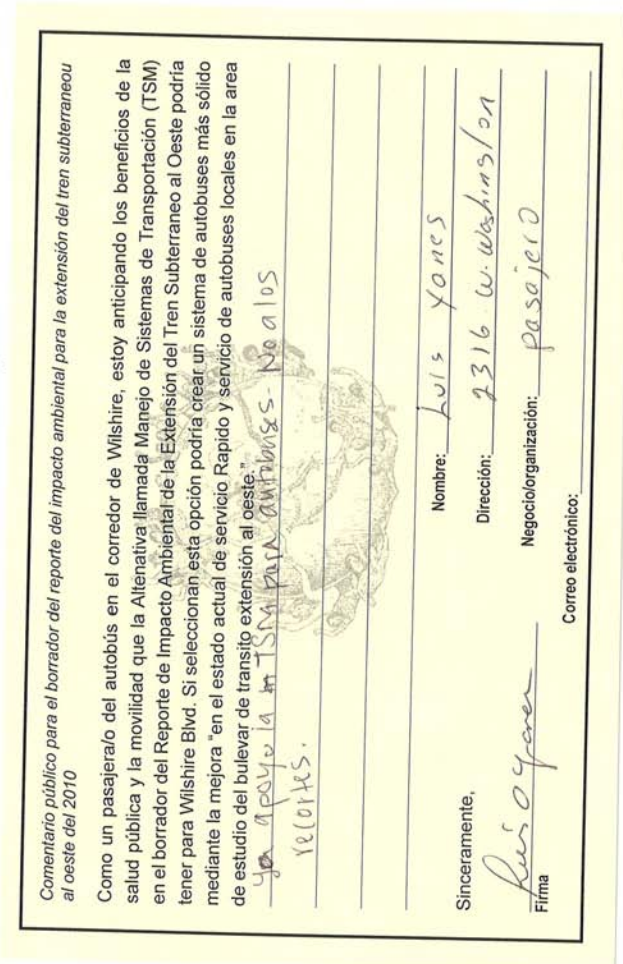 Comentario público para el borrador del reporte del impacto ambiental para la extensión del tren subterraneou
al oeste del 2010
Como un pasajera/o del autobús en el corredor de Wilshire, estoy anticipando los beneficios de la
salud pública y la movilidad que la Altenativa llamada Manejo de Sistemas de Transportación (TSM)
en el borrador del Reporte de Impacto Ambiental de la Extensión del Tren Subterraneo al Oeste podría
tener para Wilshire Blvd. Si seleccionan esta opción podría crear un sistema de autobuses más sólido
mediante la mejora "en el estado actual de servicio Rapido y servicio de autobuses locales en la area
de estudio del bulevar de transito extensión al oeste."
apoyo la TSM para autobuses. No a los
recortes.
Sinceramente,
Nombre: Luis Yanes
Dirección: 2316 W. Washington
Negocio/organización: pasajero
Firma
Correo electrónico: